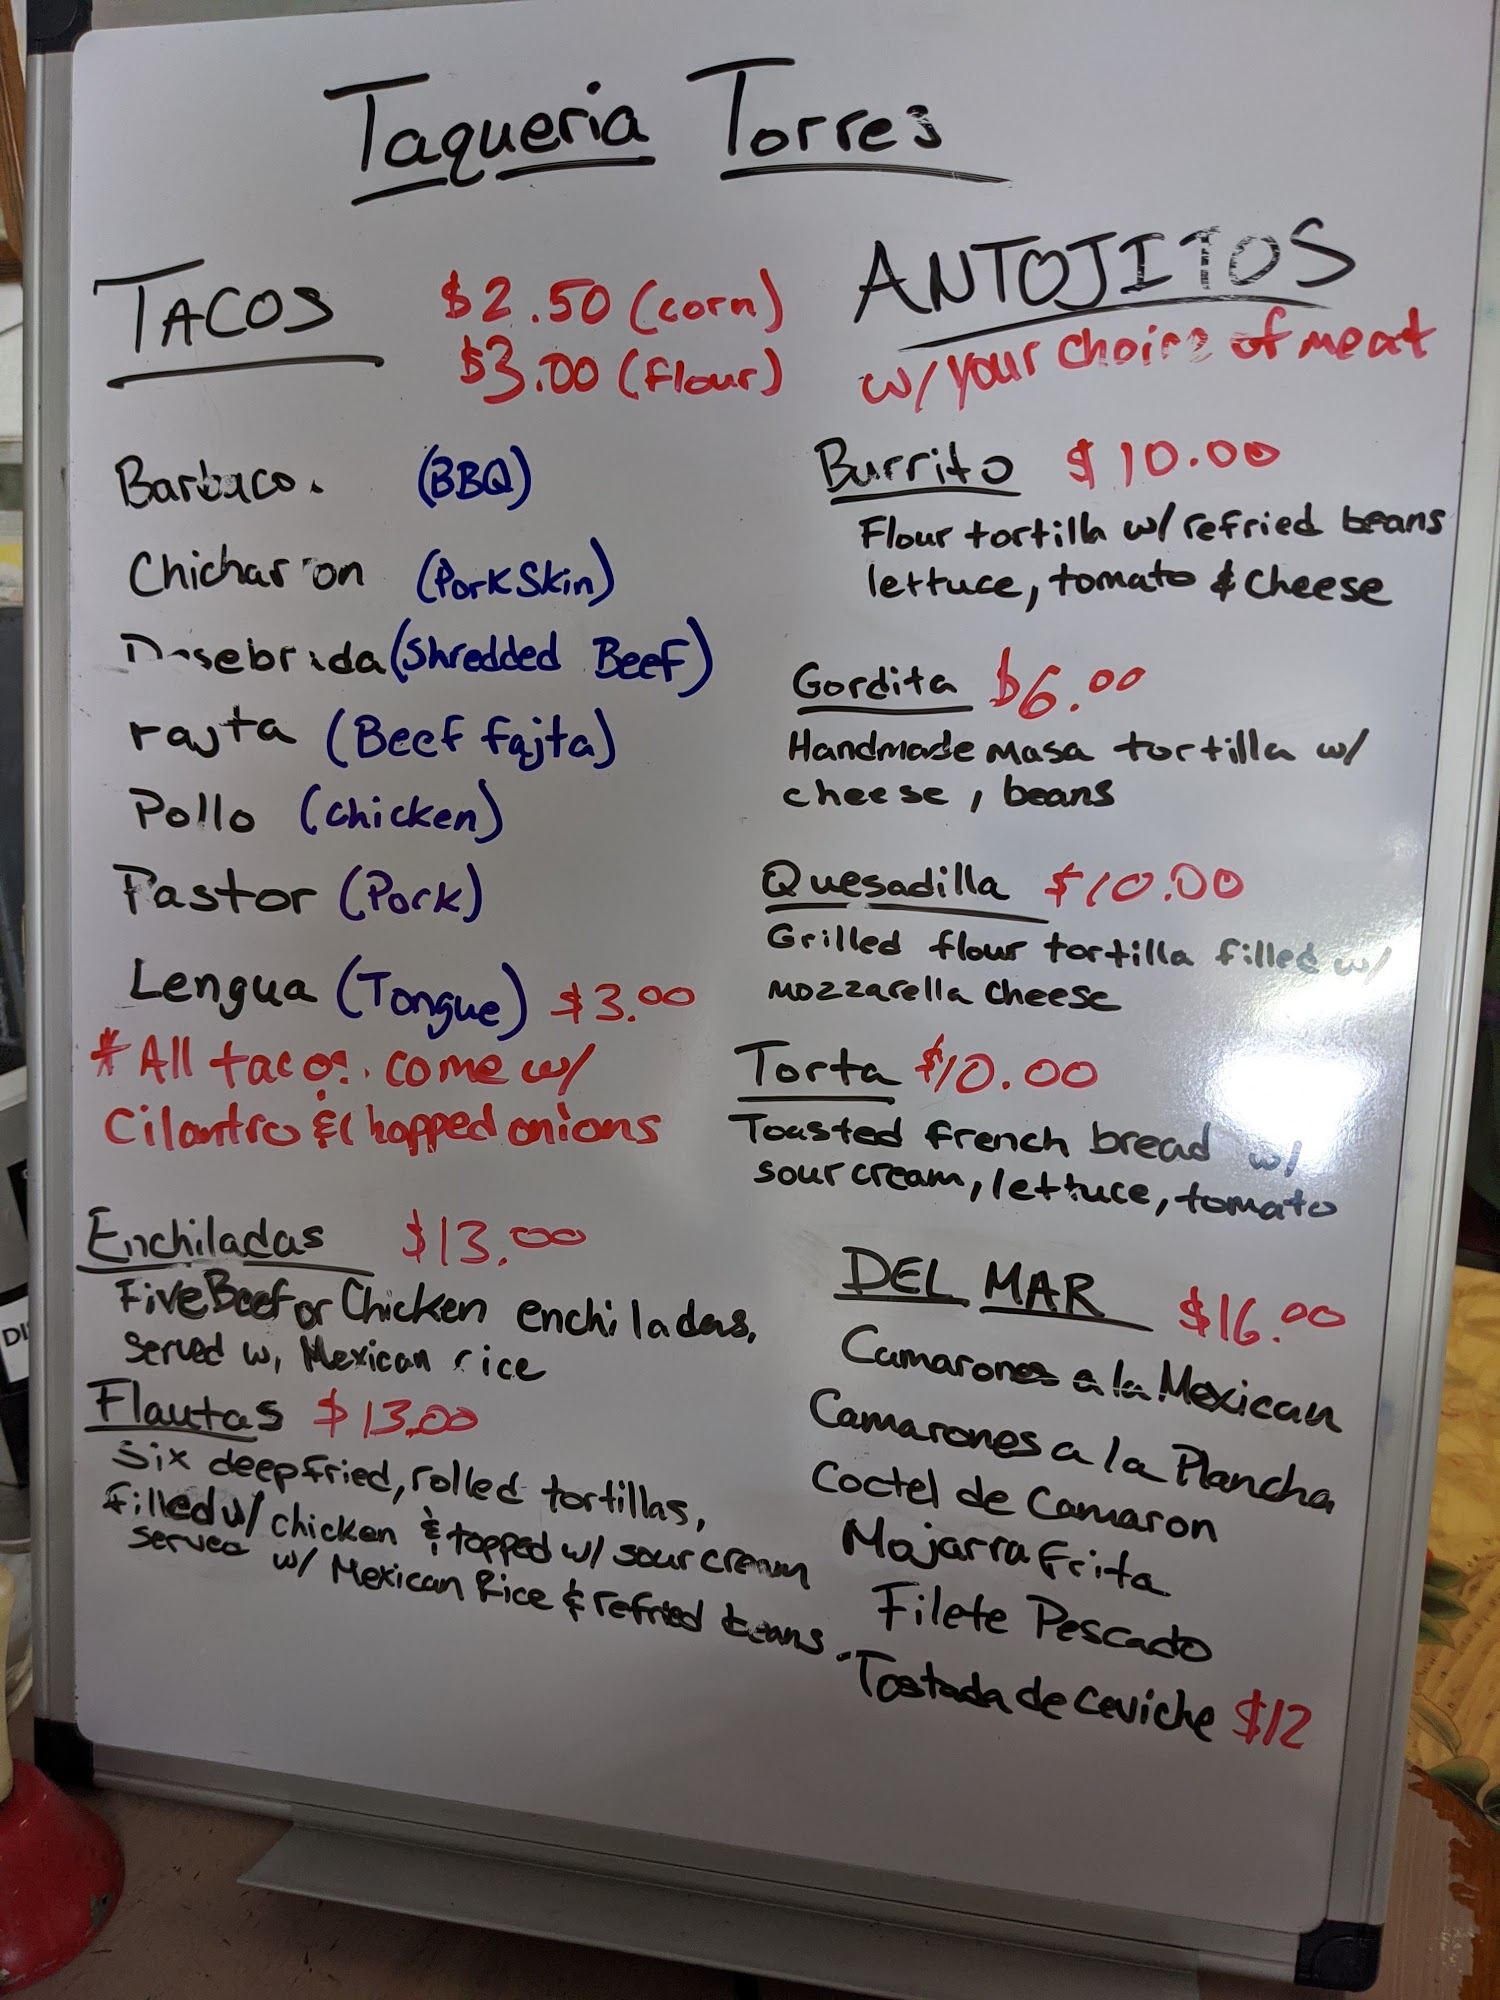 Taqueria Torres
TACOS
$2.50 (corn)
$3.00 (flour)
Barbaco.
(BBQ)
Chichar on
(Pork Skin)
Desebrada (Shredded Beef)
Fajta (Beef fajta)
Pollo (chicken)
Pastor (Pork)
Lengua (Tongue) $3.00
* All tacos come w/
Cilantro & chopped onions
Enchiladas $13.00
Five Beef or Chicken enchiladas,
served w/ Mexican rice
Flautas $13.00
Six deep fried, rolled tortillas,
filled w/ chicken & topped w/ sour cream
served w/ Mexican Rice & refried beans.
ANTOJITOS
w/ your choice of meat
Burrito $10.00
Flour tortilla w/ refried beans
lettuce, tomato & cheese
Gordita $6.00
Handmade masa tortilla w/
cheese, beans
Quesadilla $10.00
Grilled flour tortilla filled w/
mozzarella cheese
Torta $10.00
Toasted french bread w/
sour cream, lettuce, tomato
DEL MAR $16.00
Camarones a la Mexican
Camarones a la Plancha
Coctel de Camaron
Mojarra Frita
Filete Pescado
Tostada de Ceviche $12
DI